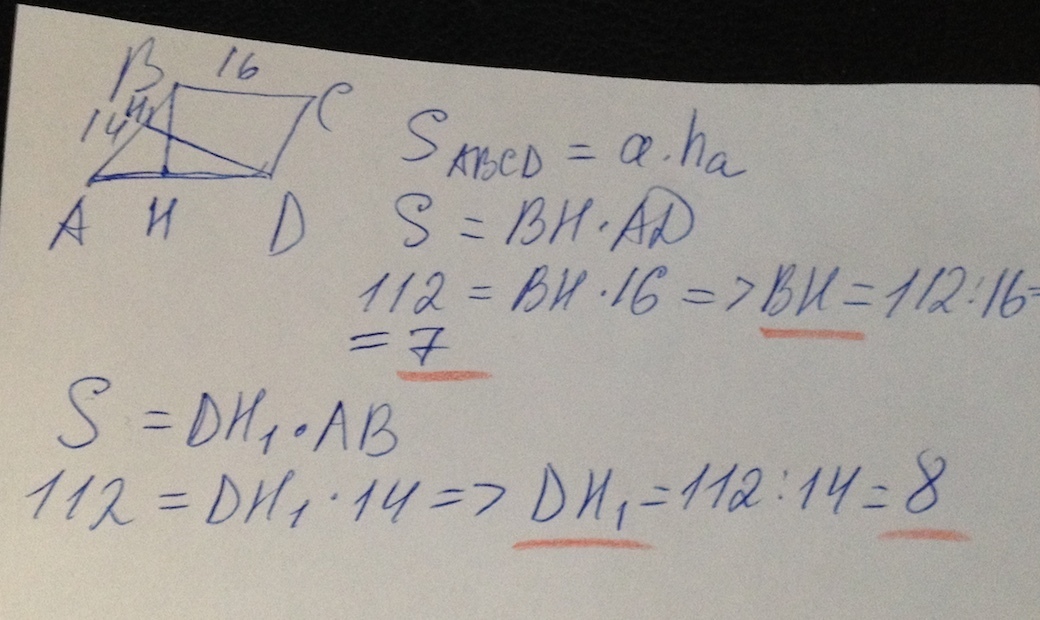 B 16 C
14 H₁
A H D
S ABCD = a · hₐ
S = BH · AD
112 = BH · 16 => BH = 112 : 16 =
= 7
S = DH₁ · AB
112 = DH₁ · 14 => DH₁ = 112 : 14 = 8